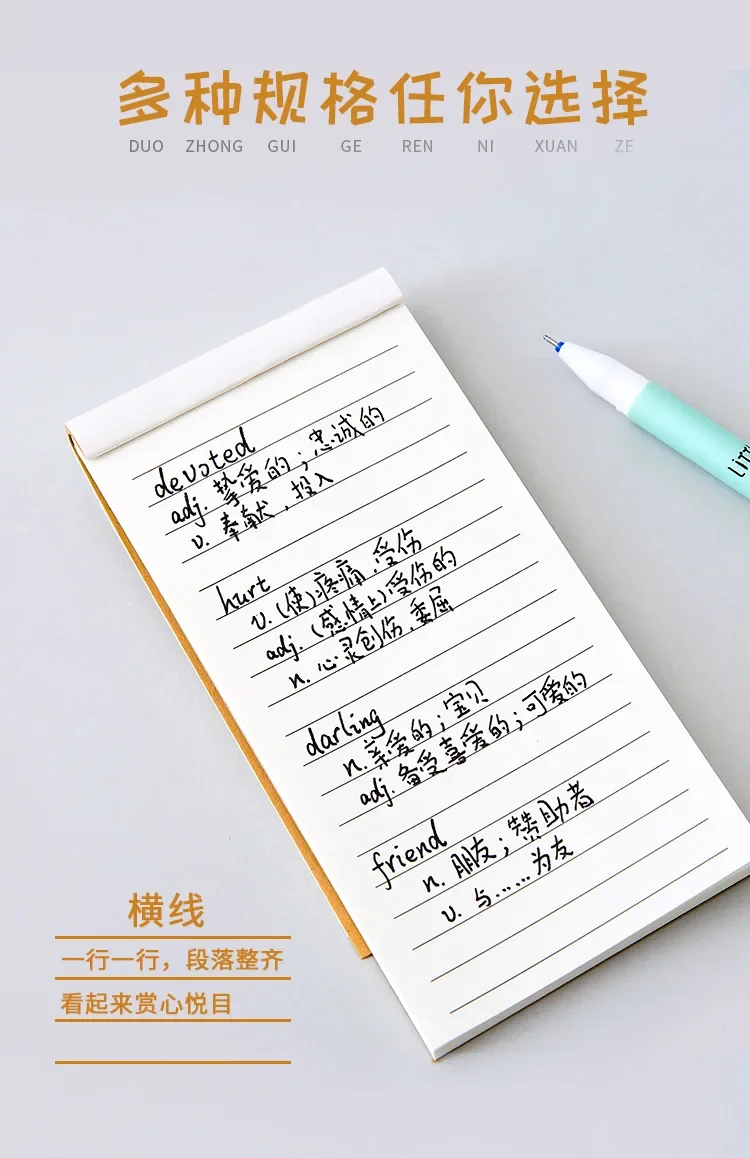 多种规格任你选择
DUO ZHONG GUI GE REN NI XUAN ZE
devoted
adj. 挚爱的；忠诚的
v. 奉献，投入
hurt
v. (使)疼痛，受伤
adj. (感情上)受伤的
n. 心灵创伤，委屈
darling
n. 亲爱的；宝贝
adj. 备受喜爱的；可爱的
friend
n. 朋友；赞助者
v. 与……为友
横线
一行一行，段落整齐
看起来赏心悦目